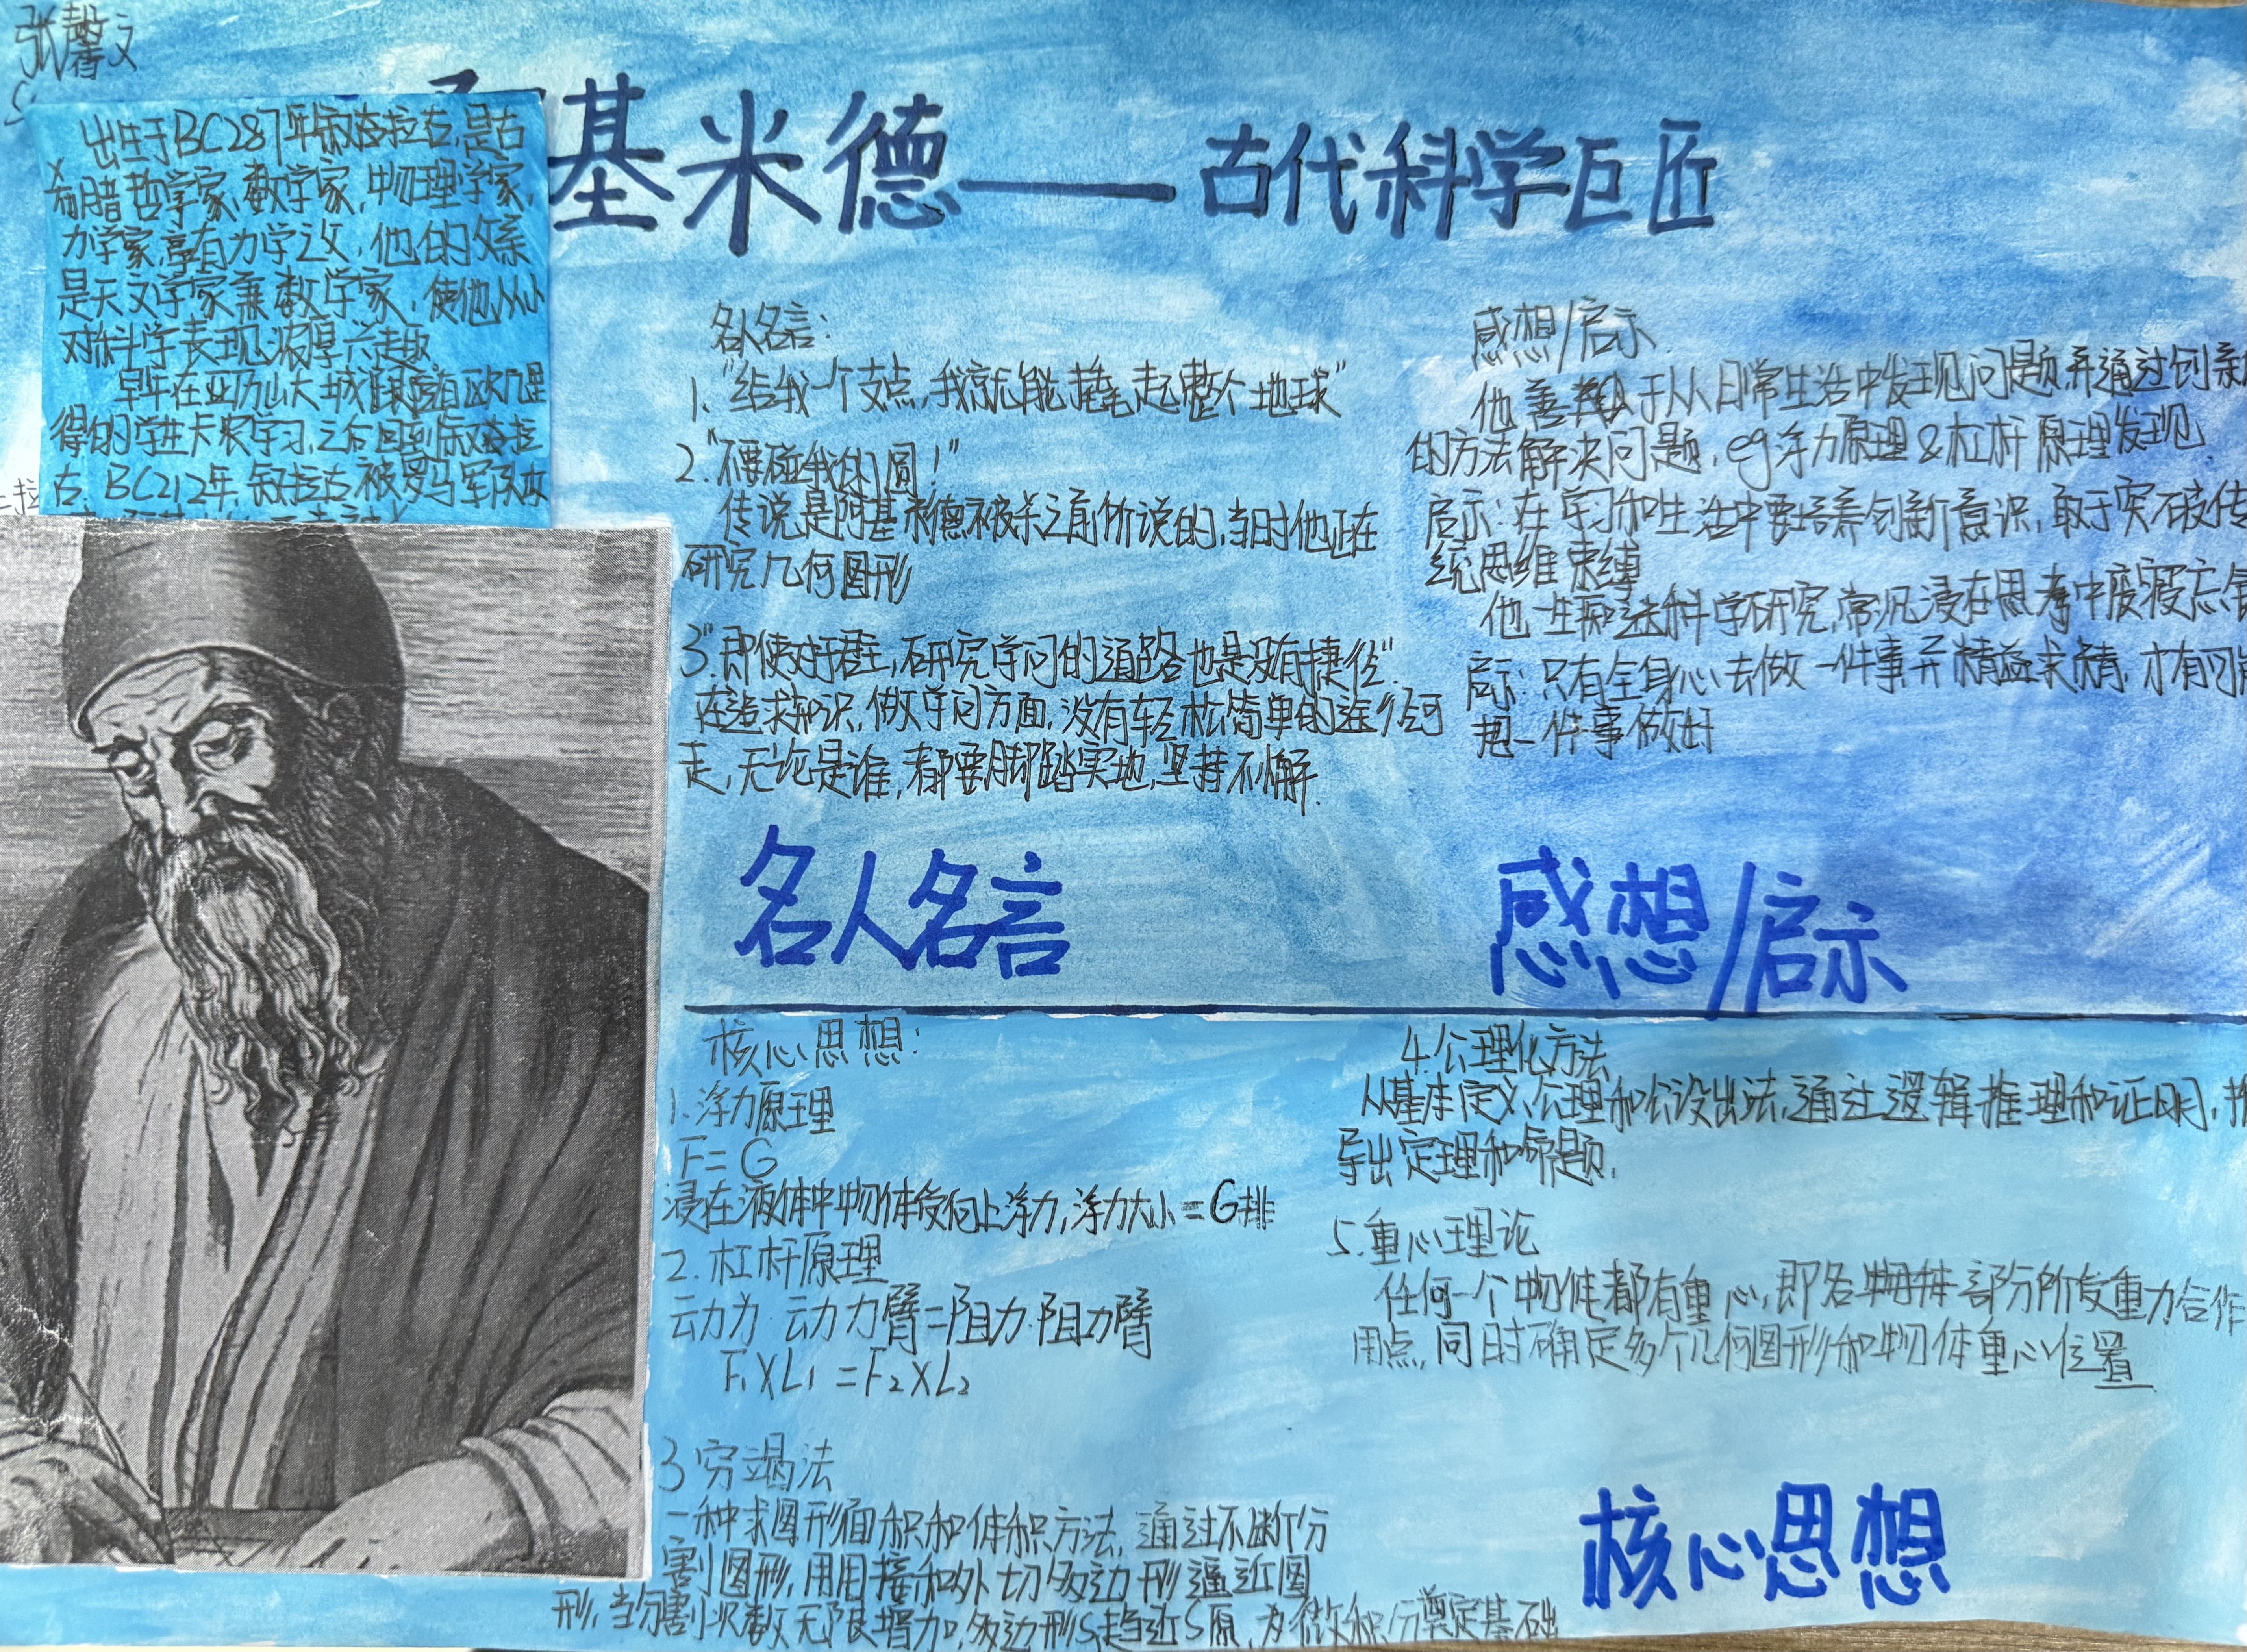 张馨文
基米德——古代科学巨匠
出生于BC287年叙拉古,是古
希腊哲学家、数学家,物理学家,
力学家,享有力学之父,他的父亲
是天文学家兼数学家,使他从小
对科学表现浓厚兴趣
早年在亚历山大城跟随欧几里
得的学生卡农学习,之后回到叙拉
古. BC212年,叙拉古被罗马军队攻
名人名言:
1、"给我一个支点,我就能撬起整个地球"
2."不要碰我的圆!"
传说是阿基米德被杀之前所说的,当时他正在
研究几何图形
3"即使对于君王,研究学问的道路也是没有捷径".
在追求知识,做学问方面,没有轻松简单的途径可
走,无论是谁,都要脚踏实地,坚持不懈.
名人名言
感想/启示
他善于从日常生活中发现问题,并通过创新
的方法解决问题,eg浮力原理&杠杆原理发现.
启示:在学习和生活中要培养创新意识,敢于突破传
统思维束缚
他一生痴迷科学研究,常沉浸在思考中废寝忘食
启示:只有全身心去做一件事并精益求精,才有可能
把一件事做好
感想/启示
核心思想:
1、浮力原理
F=G
浸在液体中物体受向上浮力,浮力大小=G排
2.杠杆原理
动力·动力臂=阻力·阻力臂
F₁×L₁=F₂×L₂
3穷竭法
一种求图形面积和体积方法,通过不断分
割图形,用内接和外切多边形逼近图
形,当分割次数无限增加,多边形S趋近S原,为微积分奠定基础
4.公理化方法
从基本定义、公理和公设出法,通过逻辑推理和证明,推
导出定理和命题.
5.重心理论
任何一个物体都有重心,即各物体部分所受重力合作
用点,同时确定多个几何图形和物体重心位置
核心思想